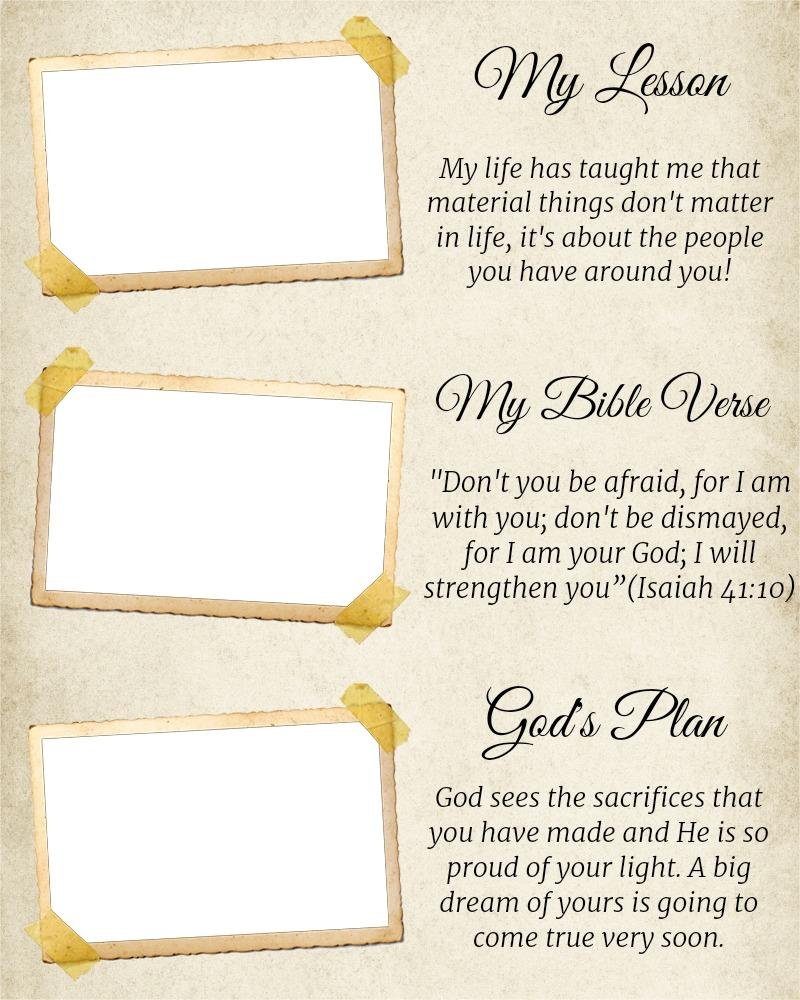 My Lesson
My life has taught me that
material things don't matter
in life, it's about the people
you have around you!
My Bible Verse
"Don't you be afraid, for I am
with you; don't be dismayed,
for I am your God; I will
strengthen you”(Isaiah 41:10)
God's Plan
God sees the sacrifices that
you have made and He is so
proud of your light. A big
dream of yours is going to
come true very soon.